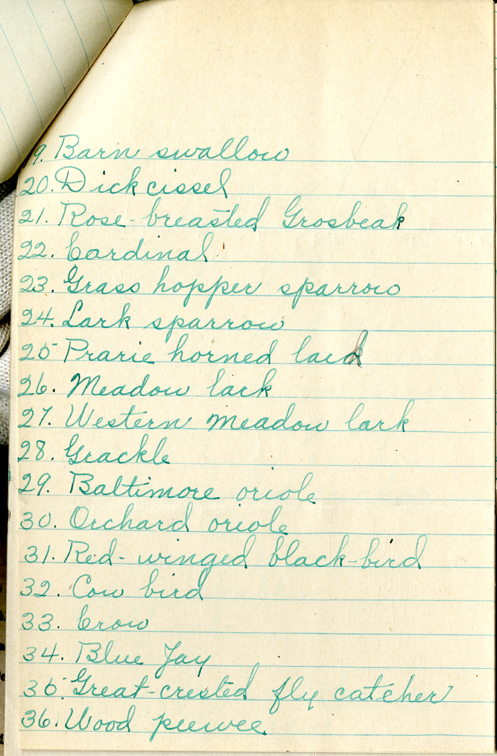 9. Barn swallow
20. Dickcissel
21. Rose-breasted Grosbeak
22. Cardinal
23. Grass hopper sparrow
24. Lark sparrow
25 Prarie horned lark
26. Meadow lark
27. Western meadow lark
28. Grackle
29. Baltimore oriole
30. Orchard oriole
31. Red-winged black-bird
32. Cow bird
33. Crow
34. Blue Jay
35. Great-crested fly catcher
36. Wood peewee